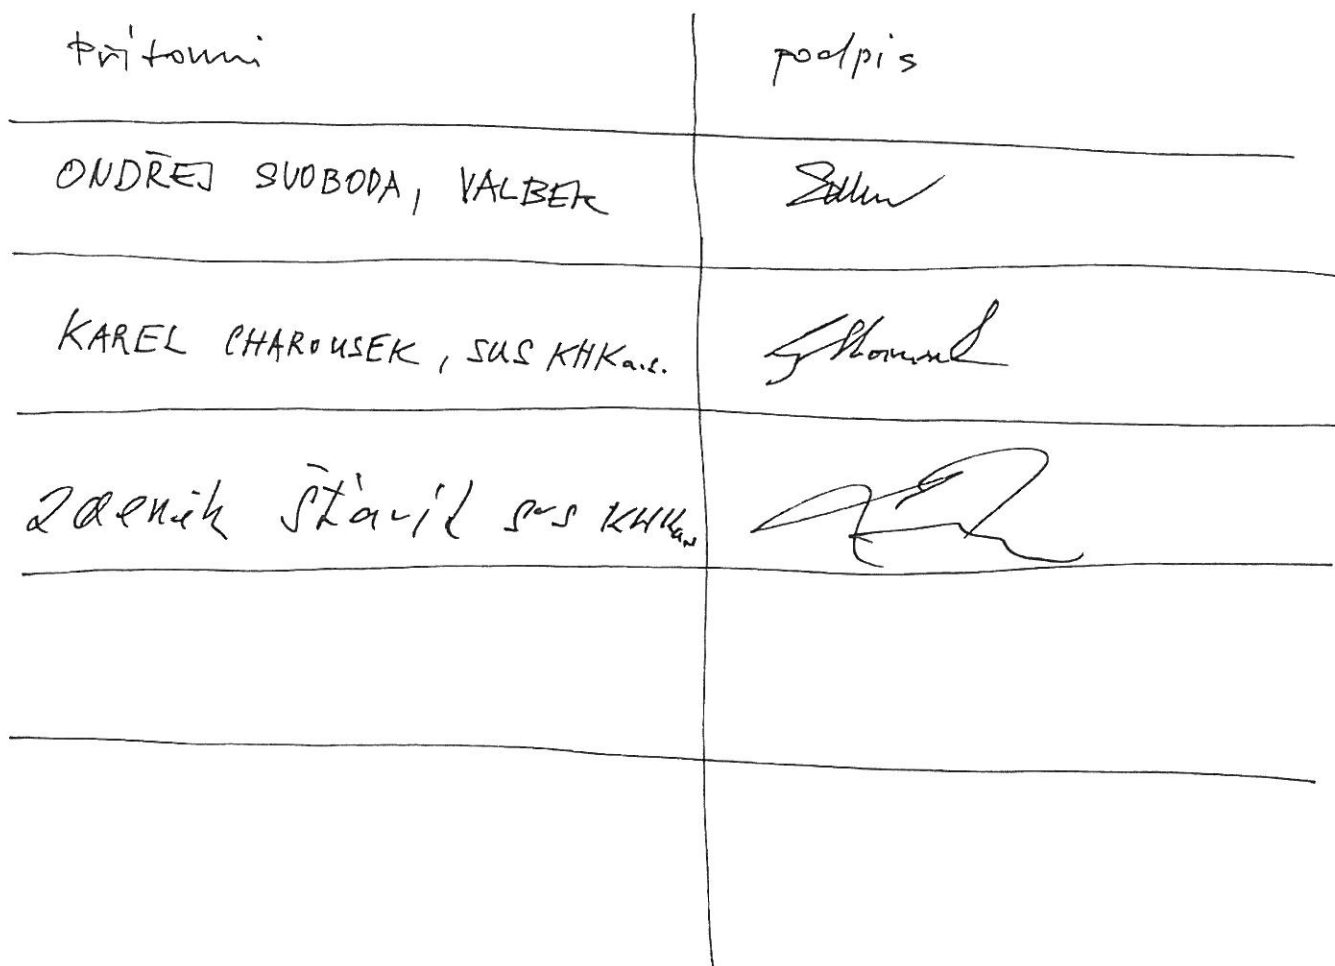 Přítomni podpis
ONDŘEJ SVOBODA, VALBEK
KAREL CHAROUSEK, SUS KHK a.s.
Zdeněk Šťávík SUS KHK a.s.